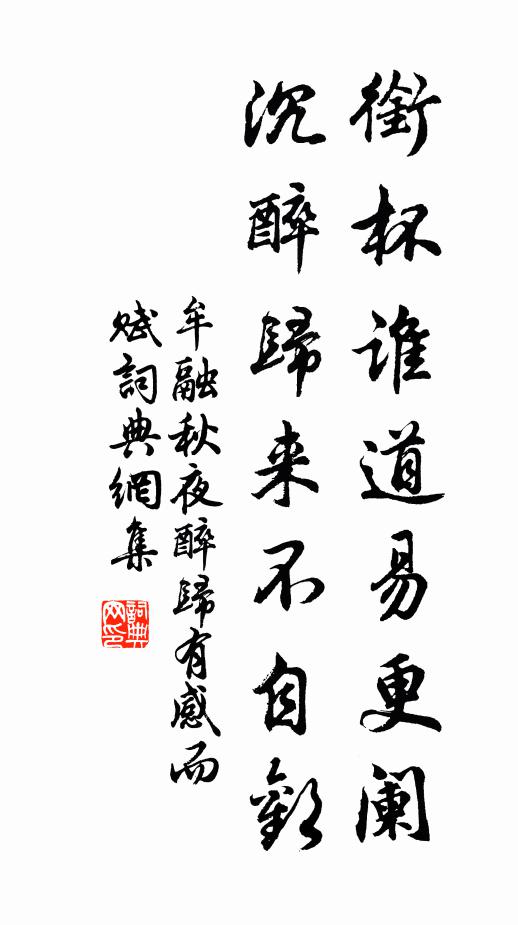 銜杯谁道易更阑
沉醉歸来不自歡
牟融秋夜醉歸有感而
赋詞典網集
詞典网印